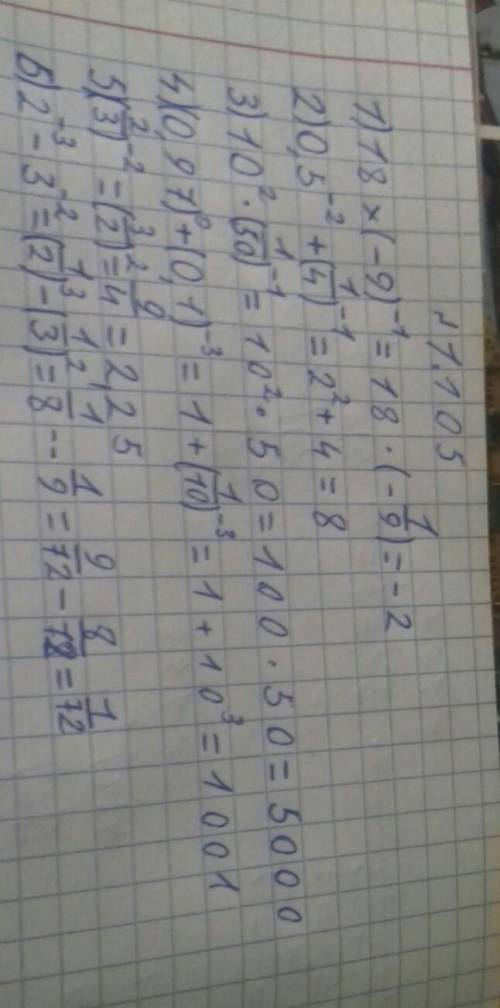 № 1.105
1) 18 × (-9)⁻¹ = 18 · (-1/9) = -2
2) 0,5⁻² + (1/4)⁻¹ = 2² + 4 = 8
3) 10² · (1/50)⁻¹ = 10² · 50 = 100 · 50 = 5000
4) (0,97)⁰ + (0,1)⁻³ = 1 + (1/10)⁻³ = 1 + 10³ = 1001
5) (2/3)⁻² = (3/2)² = 9/4 = 2,25
6) 2⁻³ - 3⁻² = (1/2)³ - (1/3)² = 1/8 - - 1/9 = 9/72 - 8/72 = 1/72